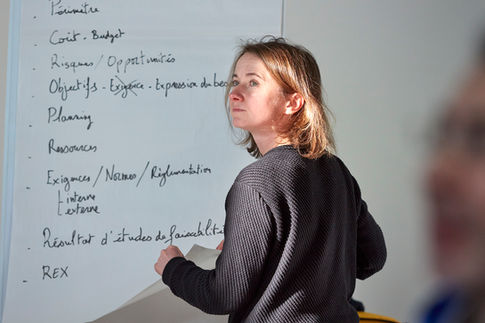 - Périmètre
- Coût - Budget
- Risques / Opportunités
- Objectifs - Exigence - Expression du be
- Planning
- Ressources
- Exigences / Normes / Réglementation
interne
externe
- Résultat d'études de faisabilité
- REX